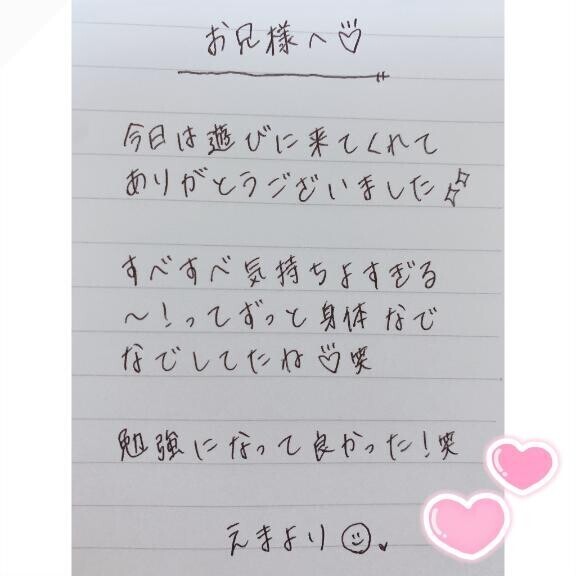 お兄様へ♡
今日は遊びに来てくれて
ありがとうございました✨
すべすべ気持ちよすぎる
〜!ってずっと身体なで
なでしてたね♡笑
勉強になって良かった!笑
えまより☺